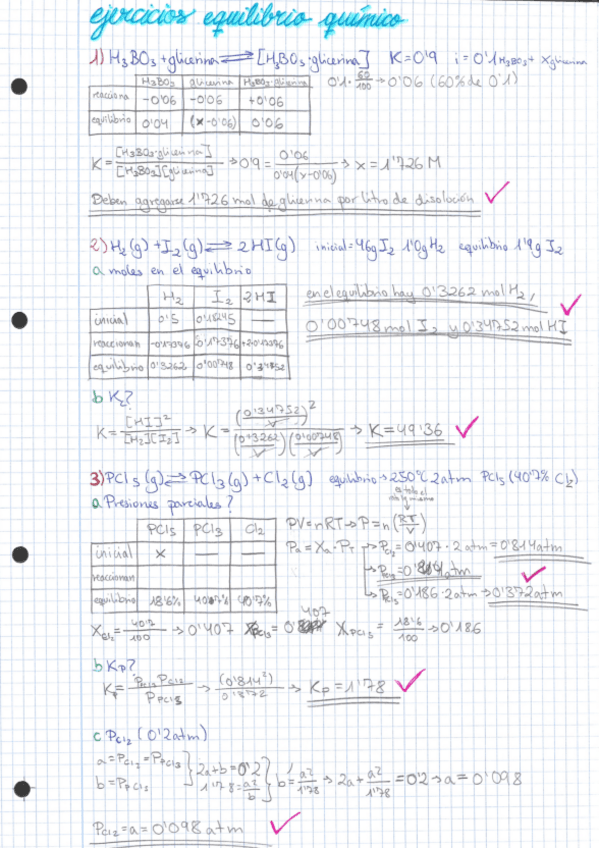 ejercicios equilibrio químico
1) H₃BO₃ + glicerina ⇌ [H₃BO₃·glicerina] K=0'9 i=0'1 H₃BO₃ + X glicerina
H₃BO₃ glicerina H₃BO₃·glicerina 0'1·60/100 → 0'06 (60% de 0'1)
reacciona -0'06 -0'06 +0'06
equilibrio 0'04 (x-0'06) 0'06
K = [H₃BO₃·glicerina]/[H₃BO₃][glicerina] → 0'9 = 0'06/0'04(x-0'06) → x = 1'726 M
Deben agregarse 1'726 mol de glicerina por litro de disolución
2) H₂(g) + I₂(g) ⇌ 2HI(g) inicial=46g I₂ 1'0g H₂ equilibrio 1'9g I₂
a moles en el equilibrio
H₂ I₂ 2HI
inicial 0'5 —
reaccionan
equilibrio 0'3262 0'00748 0'34752
en el equilibrio hay 0'3262 mol H₂,
0'00748 mol I₂ y 0'34752 mol HI
b
K = [HI]²/[H₂][I₂] → K = (0'34752/V)²/(0'3262/V)(0'00748/V) → K = 49'36
3) PCl₅(g) ⇌ PCl₃(g) + Cl₂(g) equilibrio → 250ºC 2atm PCl₅ (40'7% Cl₂)
a Presiones parciales?
PCl₅ PCl₃ Cl₂
inicial x — —
reaccionan
equilibrio 18'6% 40'7% 40'7%
PV=nRT → P=n(RT/V)
Pa = Xa·PT → P Cl₂ = 0'407·2 atm = 0'814 atm
→ P PCl₃ = 0'814 atm
→ P PCl₅ = 0'186·2atm → 0'372 atm
X Cl₂ = 40'7/100 → 0'407 X PCl₃ = 0'407 X PCl₅ = 18'6/100 → 0'186
b Kp?
Kp = P PCl₃ P Cl₂/P PCl₅ → (0'814²)/0'372 → Kp = 1'78
c P Cl₂ (0'2 atm)
a = P Cl₂ = P PCl₃ } 2a+b = 0'2
b = P PCl₅ } 1'78 = a²/b } b = a²/1'78 → 2a + a²/1'78 = 0'2 → a = 0'098
P Cl₂ = a = 0'098 atm